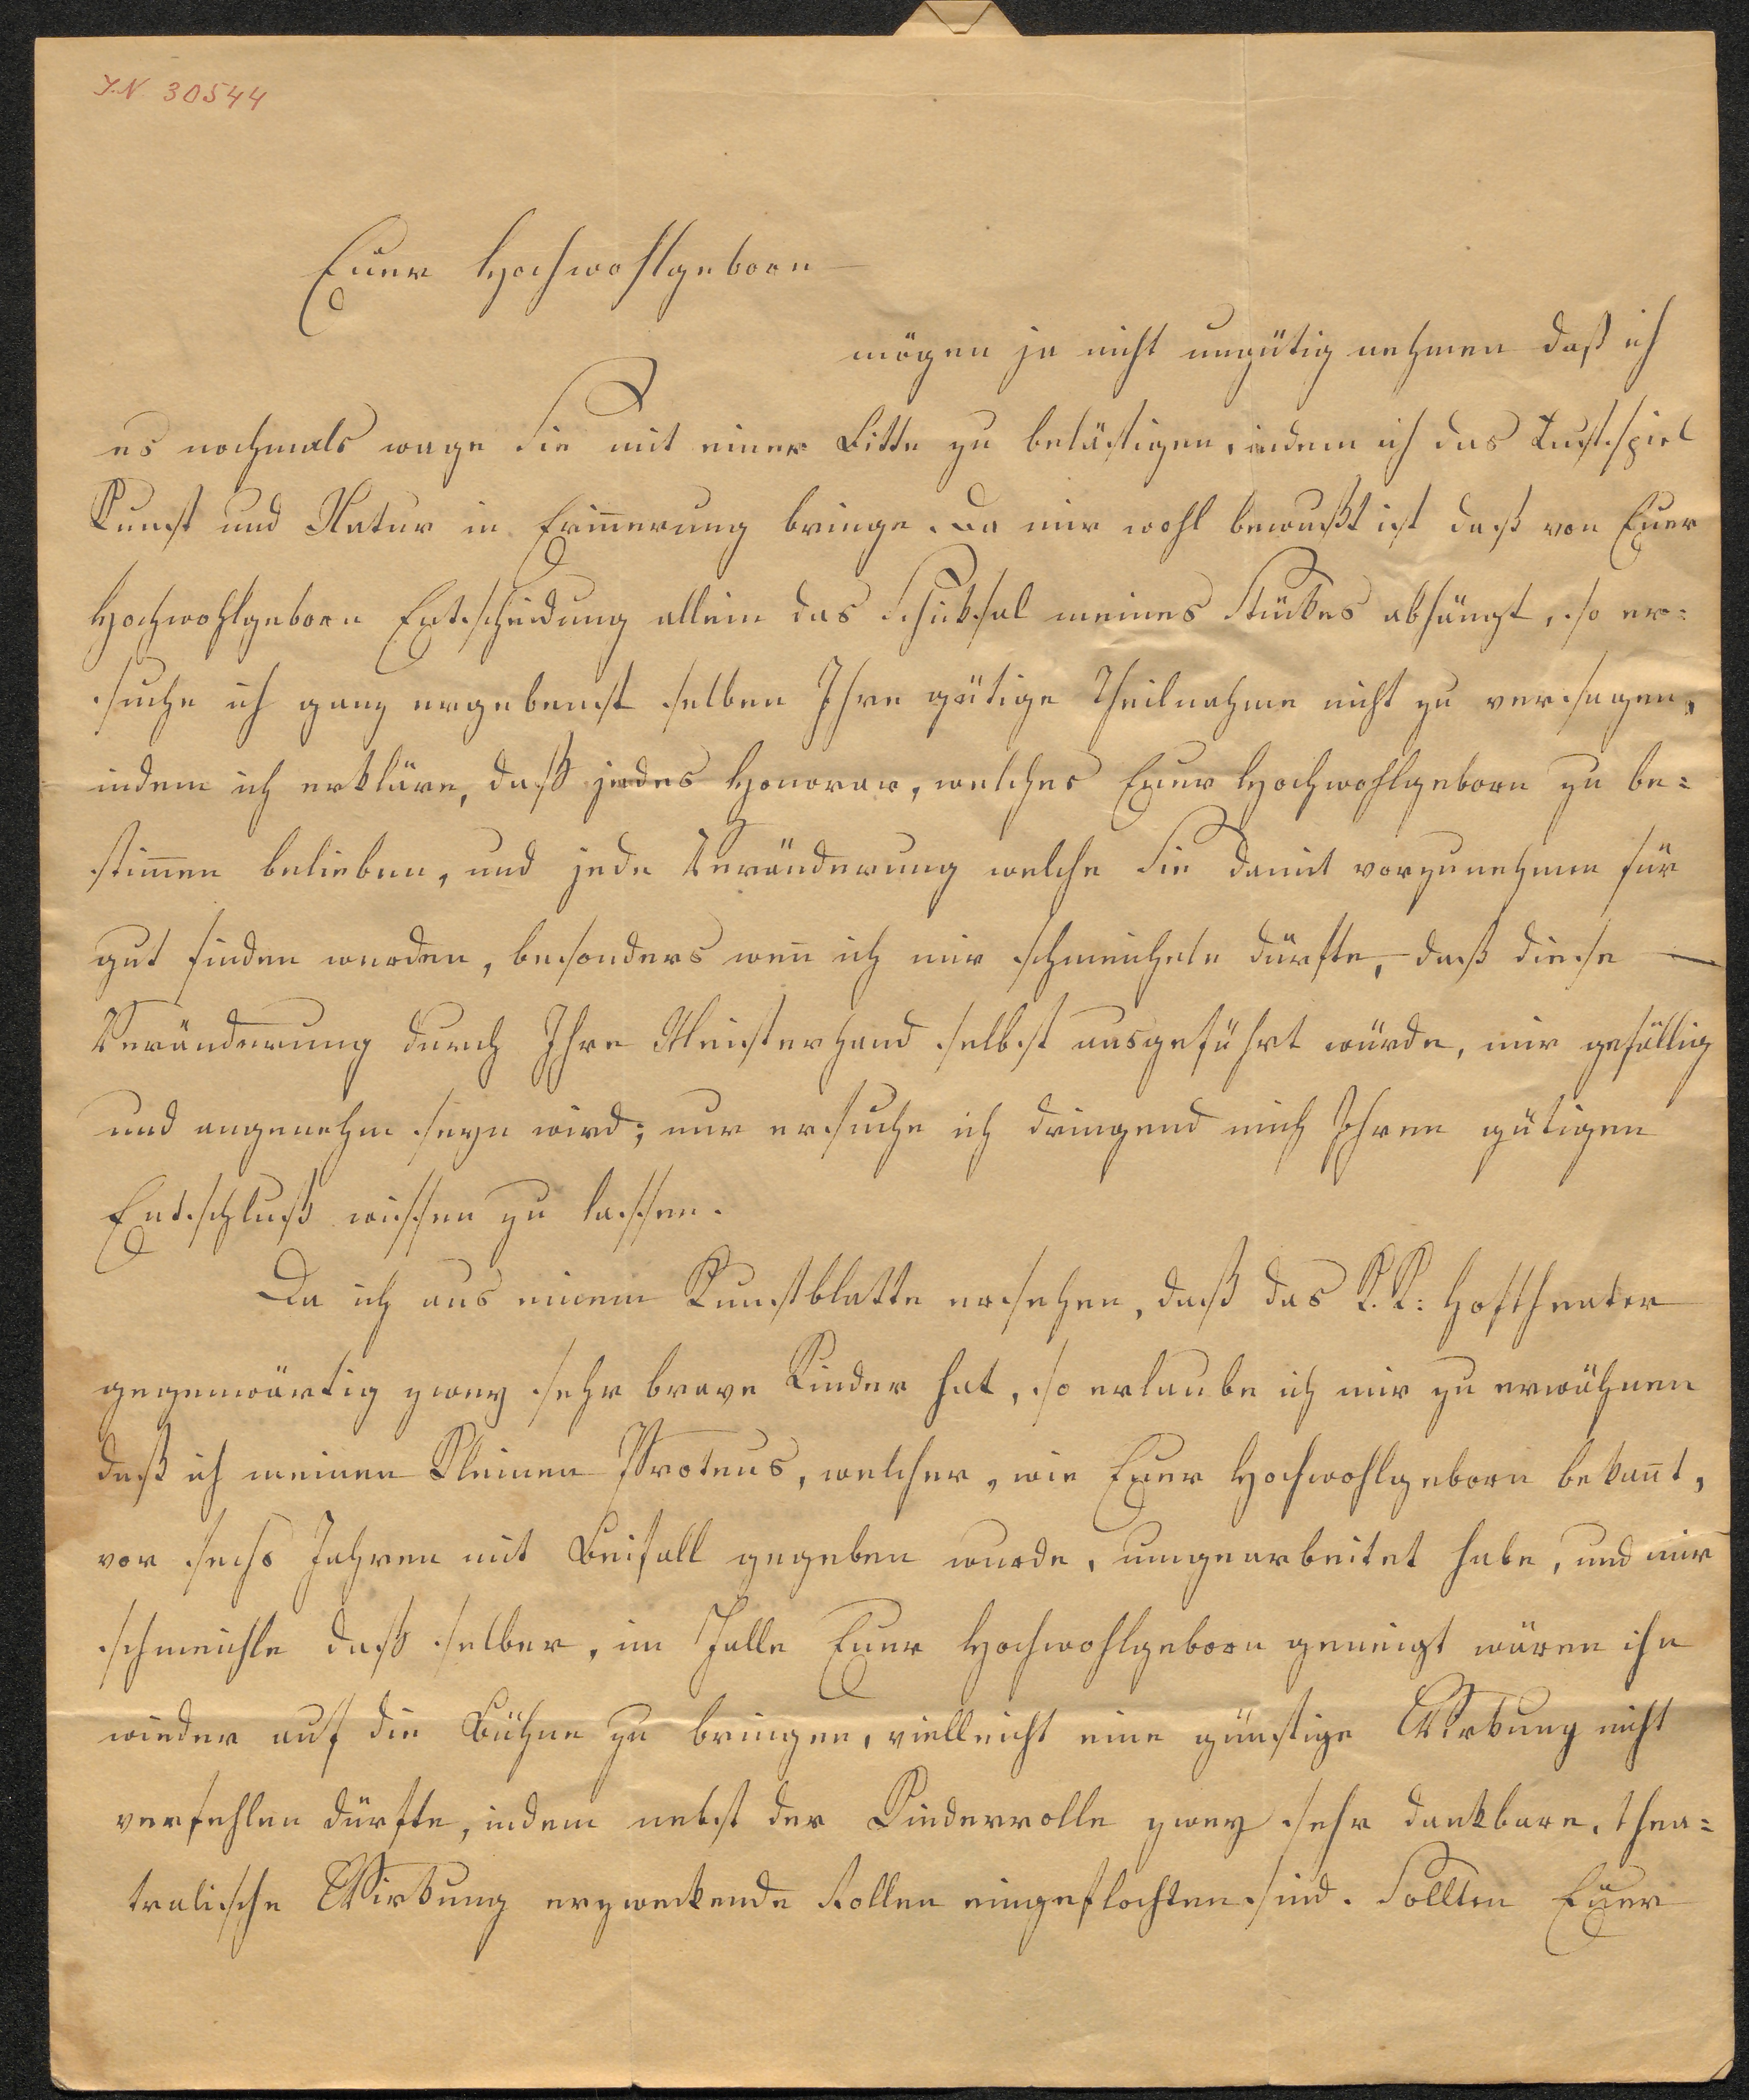 I.N. 30544
Euer Hochwohlgeborn
mögen ja nicht ungütig nehmen daß ich
es nochmals wage Sie mit einer Bitte zu belästigen, indem ich das Lustspiel
Kunst und Natur in Erin̄erung bringe. Da mir wohl bewußt ist daß von Euer
Hochwohlgeborn Entscheidung allein das Schicksal meines Stückes abhängt, so er=
suche ich ganz ergebenst selben Ihre gütige Theilnahme nicht zu versagen,
indem ich erkläre, daß jedes Honorar, welches Euer Hochwohlgeborn zu be=
stim̄en belieben, und jede Veränderung welche Sie damit vorzunehmen für
gut finden werden, besonders wen̄ ich mir schmeicheln dürfte, daß diese
Veränderung durch Ihre Meisterhand selbst ausgeführt würde, mir gefällig
und angenehm seyn wird; nur ersuche ich dringend mich Ihren gütigen
Entschluß wissen zu lassen.
Da ich aus einem Kunstblatte ersehen, daß das K. K: Hoftheater
gegenwärtig zwey sehr brave Kinder hat, so erlaube ich mir zu erwähnen
daß ich meinen Kleinen Proteus, welcher, wie Euer Hochwohlgeborn bekan̄t,
vor sechs Jahren mit Beifall gegeben wurde, umgearbeitet habe, und mir
schmeichle daß selber, im Falle Euer Hochwohlgeborn geneigt wären ihn
wieder auf die Bühne zu bringen, vielleicht eine günstige Wirkung nicht
verfehlen dürfte, indem nebst der Kinderrolle zwey sehr dankbare, thea=
tralische Wirkung erzweckende Rollen eingeflochten sind. Sollten Euer